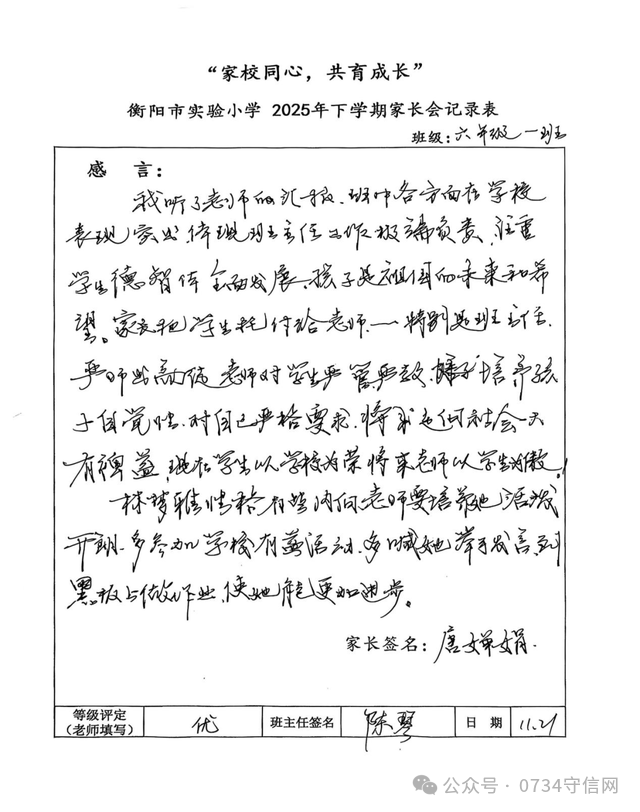 “家校同心，共育成长”
衡阳市实验小学 2025年下学期家长会记录表
班级：六年级一班
感 言：
我听了老师的汇报，班中各方面在学校
表现突出，体现班主任工作极端负责，注重
学生德智体全面发展，孩子是祖国的未来和希
望。家长把学生托付给老师，一特别是班主任。
严师出高徒，老师对学生严管严教，培养孩
子自觉性，对自己严格要求，将来走向社会大
有裨益，现在学生以学校为荣将来老师以学生为傲。
林梦雅性格有些内向，老师要培养她活泼
开朗，多参加学校有益活动，多喊她举手发言，到
黑板上做作业，使她能更加进步。
家长签名：唐婵娟
等级评定
（老师填写） 优 班主任签名 陈琴 日 期 11.21
公众号 · 0734守信网